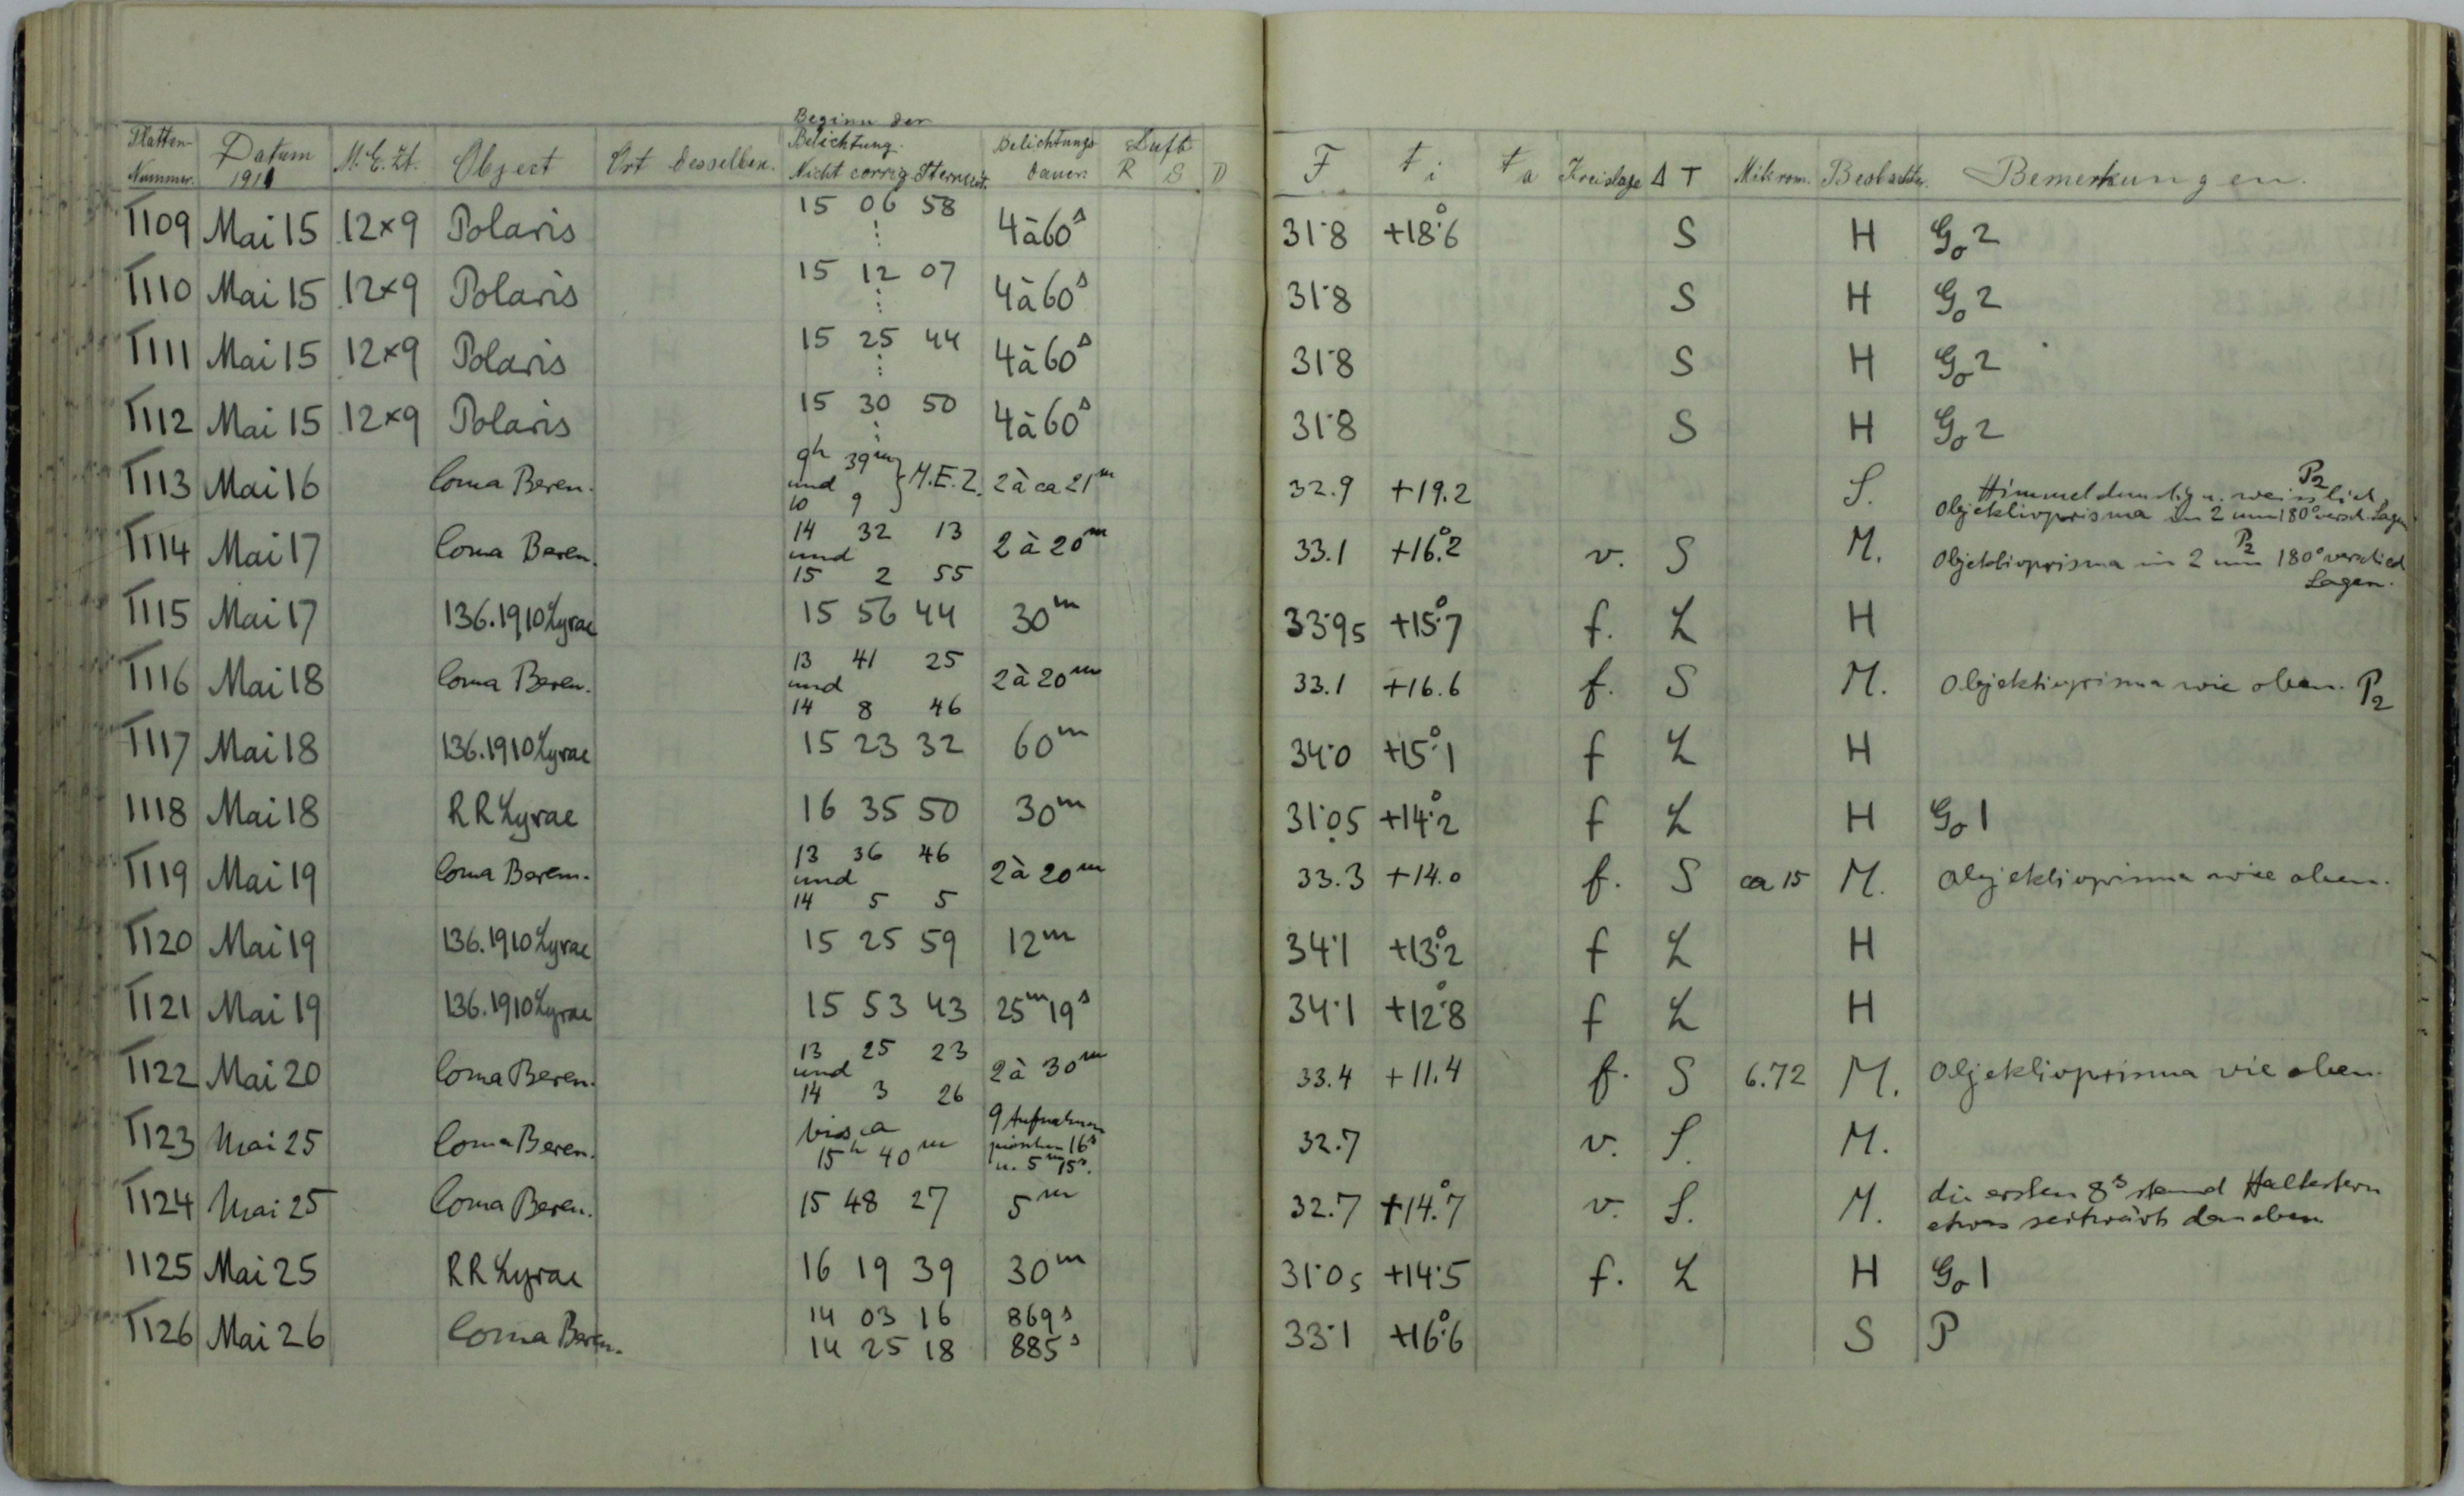 Beginn der
Platten- Nummer. Datum 1911 M.E.Zt. Object Ort desselben. Belichtung. Nicht corrig. Sternzt. Belichtungs dauer. Luft R S D F t i t a Kreislage Δ T Mikrom. Beobachter. Bemerkungen.
1109 Mai 15 12×9 Polaris 15 06 58 ⋮ 4 à 60s 31·8 +18°.6 S H Go 2
1110 Mai 15 12×9 Polaris 15 12 07 ⋮ 4 à 60s 31·8 S H Go 2
1111 Mai 15 12×9 Polaris 15 25 44 ⋮ 4 à 60s 31·8 S H Go 2
1112 Mai 15 12×9 Polaris 15 30 50 ⋮ 4 à 60s 31·8 S H Go 2
1113 Mai 16 Coma Beren. 9h 39m und 10 9 } M.E.Z. 2 à ca 21m 32.9 +19.2 S. Himmel dunstig u. weisslich. P2
Objektivprisma in 2 um 180° versch. Lagen
1114 Mai 17 Coma Beren. 14 32 13 und 15 2 55 2 à 20m 33.1 +16°.2 v. S M. P2 Objektivprisma in 2 um 180° verschied
Lagen.
1115 Mai 17 136.1910 Lyrae 15 56 44 30m 33·95 +15°.7 f. L H
1116 Mai 18 Coma Beren. 13 41 25 und 14 8 46 2 à 20m 33.1 +16.6 f. S M. Objektivprisma wie oben. P2
1117 Mai 18 136.1910 Lyrae 15 23 32 60m 34·0 +15°.1 f L H
1118 Mai 18 RR Lyrae 16 35 50 30m 31·05 +14°.2 f L H Go 1
1119 Mai 19 Coma Beren. 13 36 46 und 14 5 5 2 à 20m 33.3 +14.0 f. S ca 15 M. Objektivprisma wie oben.
1120 Mai 19 136.1910 Lyrae 15 25 59 12m 34·1 +13°.2 f L H
1121 Mai 19 136.1910 Lyrae 15 53 43 25m 19s 34·1 +12°.8 f L H
1122 Mai 20 Coma Beren. 13 25 23 und 14 3 26 2 à 30m 33.4 +11.4 f. S 6.72 M. Objektivprisma wie oben.
1123 Mai 25 Coma Beren. bis ca 15h 40m 9 Aufnahmen zwischen 16s u. 5m 15s. 32.7 v. S. M.
1124 Mai 25 Coma Beren. 15 48 27 5m 32.7 +14°.7 v. S. M. die ersten 8s stand Haltestern
etwas seitwärts daneben
1125 Mai 25 RR Lyrae 16 19 39 30m 31·05 +14·5 f. L H Go 1
1126 Mai 26 Coma Beren. 14 03 16 869s 33·1 +16°.6 S P
14 25 18 885s